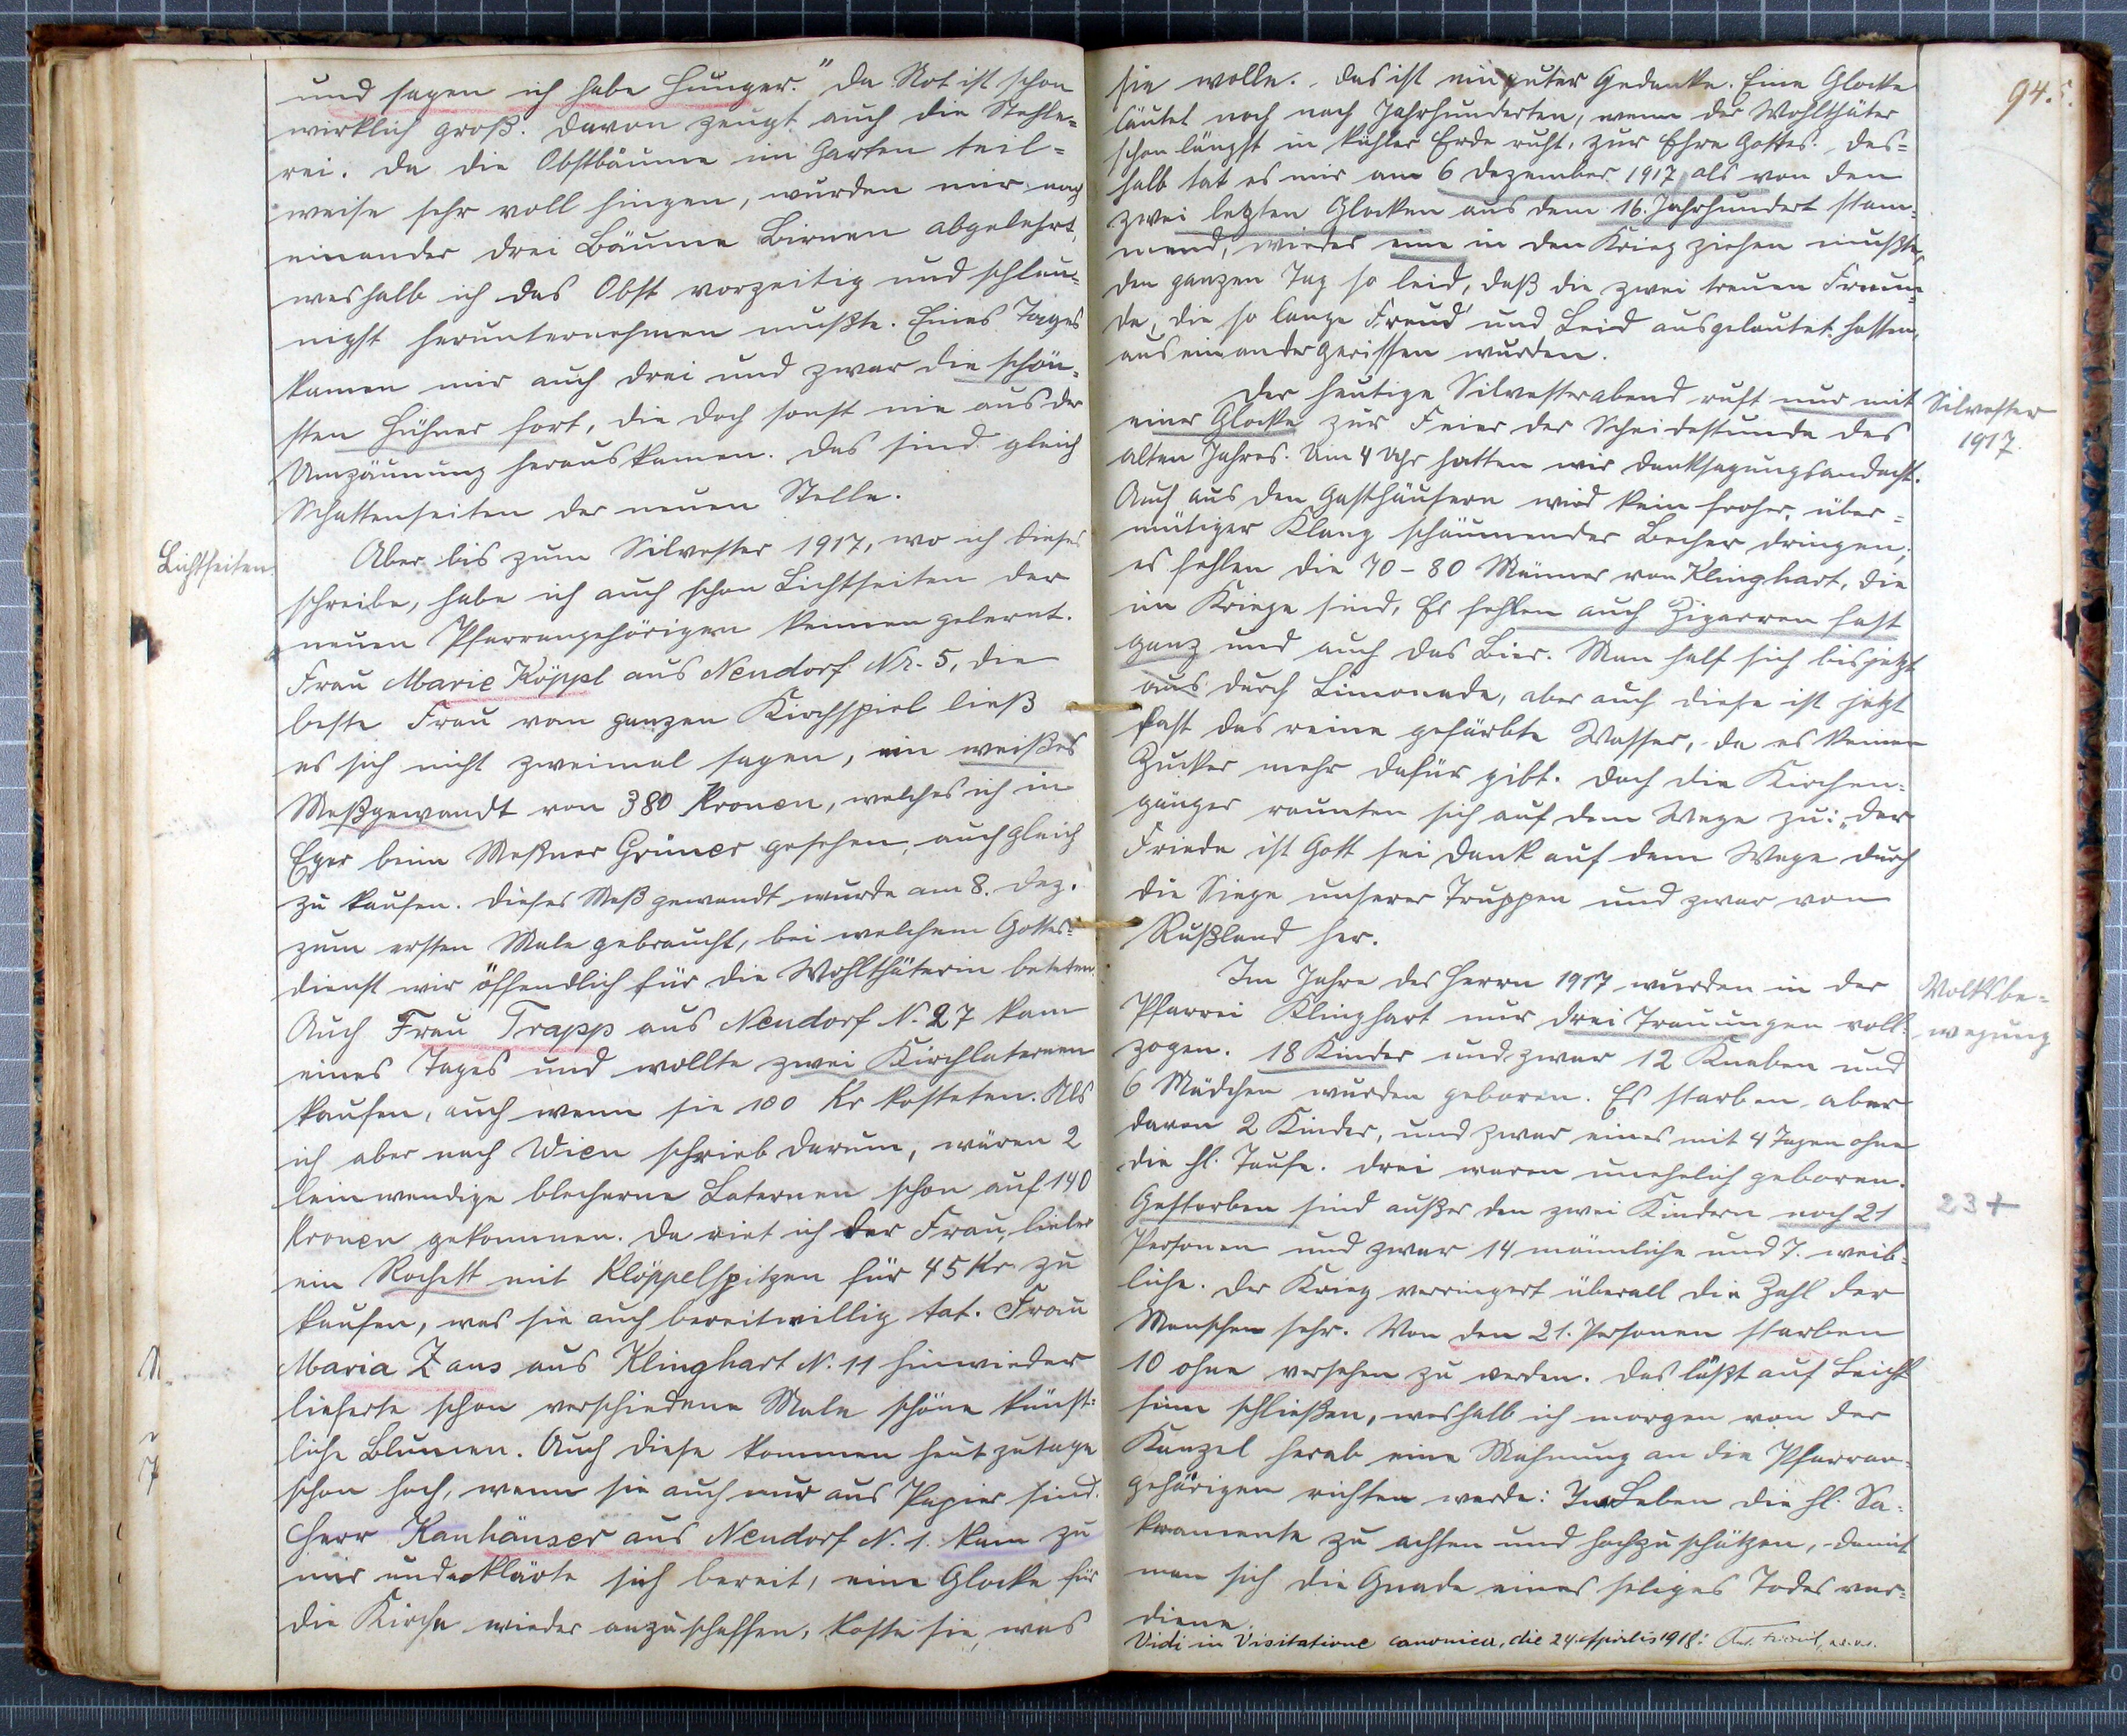 und sagen ich habe Hunger." Da Not ist schon
wirklich groß. Davon zeugt auch die Stehle-
rei. Da die Obstbäume im Garten teil-
weise sehr voll hingen, wurden mir nach
einander drei Bäume Birnen abgelehrt,
weshalb ich das Obst vorzeitig und schleu-
nigst herunternehmen mußte. Eines Tages
kamen mir auch drei und zwar die schön-
sten Hühner fort, die doch sonst nie aus der
Umzäunung herauskamen. Das sind gleich
Schattenseiten der neuen Stelle.
Lichtseiten.
Aber bis zum Silvester 1917, wo ich dieses
schreibe, habe ich auch schon Lichtseiten der
neuen Pfarrangehörigen kennen gelernt.
Frau Marie Köppl aus Neudorf Nr. 5, die
beste Frau vom ganzen Kirchspiel ließ
es sich nicht zweimal sagen, ein weißes
Meßgewandt von 380 Kronen, welches ich in
Eger beim Meßner Grüner gesehen, auch gleich
zu kaufen. Dieses Meßgewandt wurde am 8. Dez.
zum ersten Male gebraucht, bei welchem Gottes-
dienst wir öffendlich für die Wohlthäterin beteten.
Auch Frau Trapp aus Neudorf N. 27 kam
eines Tages und wollte zwei Kirchlaternen
kaufen, auch wenn sie 100 Kr kosteten. Als
ich aber nach Wien schrieb darum, wären 2
leinwendige blecherne Laternen schon auf 140
Kronen gekommen. Da riet ich der Frau, lieber
ein Rochett mit Klöppelspitzen für 45 Kr. zu
kaufen, was sie auch bereitwillig tat. Frau
Maria Zaus aus Klinghart N. 11 hinwieder
lieferte schon verschiedene Male schöne künst-
liche Blumen. Auch diese kommen heut zutage
schon hoch, wenn sie auch nur aus Papier sind.
Herr Kanhäuser aus Neudorf N. 1. kam zu
mir und erklärte sich bereit, eine Glocke für
die Kirche wieder anzuschaffen, koste sie, was
94.
sie wolle. Das ist ein guter Gedanke. Eine Glocke
läutet noch nach Jahrhunderten, wenn der Wohlthäter
schon längst in kühler Erde ruht, zur Ehre Gottes. Des-
halb tat es mir am 6 Dezember 1917, als von den
zwei letzten Glocken aus dem 16. Jahrhundert stam-
mend, wieder eine in den Krieg ziehen mußte,
den ganzen Tag so leid, daß die zwei treuen Freun-
de, die so lange Freud und Leid ausgeläutet hatten,
auseinandergerissen wurden.
Silvester
1917.
Der heutige Silvesterabend ruft nur mit
einer Glocke zur Feier der Scheidestunde des
alten Jahres. Um 4 Uhr hatten wir Danksagungsandacht.
Auch aus den Gasthäusern wird kein froher, über-
mütiger Klang schäumender Becher dringen;
es fehlen die 70-80 Männer von Klinghart, die
im Kriege sind. Es fehlen auch Zigarren fast
ganz und auch das Bier. Man half sich bis jetzt
aus durch Limonade, aber auch diese ist jetzt
fast das reine gefärbte Wasser, da es keinen
Zucker mehr dafür gibt. Doch die Kirchen-
gänger raunten sich auf dem Wege zu: „Der
Friede ist Gott sei Dank auf dem Wege durch
die Siege unserer Truppen und zwar von
Rußland her.
Volksbe-
wegung
Im Jahre des Herrn 1917 wurden in der
Pfarrei Klinghart nur drei Trauungen voll-
zogen. 18 Kinder und zwar 12 Knaben und
6 Mädchen wurden geboren. Es starben aber
davon 2 Kinder, und zwar eines mit 4 Tagen ohne
die hl. Taufe. Drei waren unehelich geboren.
23 +
Gestorben sind außer den zwei Kindern noch 21
Personen und zwar 14 männliche und 7. weib-
liche. Der Krieg verringert überall die Zahl der
Menschen sehr. Von den 21. Personen starben
10 ohne versehen zu werden. Das läßt auf Leicht-
sinn schließen, weshalb ich morgen von der
Kanzel herab eine Mahnung an die Pfarran-
gehörigen richten werde: Im Leben die hl. Sa-
kramente zu achten und hochzuschätzen, damit
man sich die Gnade eines seliges Todes ver-
diene.
Vidi in Visitatione canonica, die 24 Aprilis 1918: